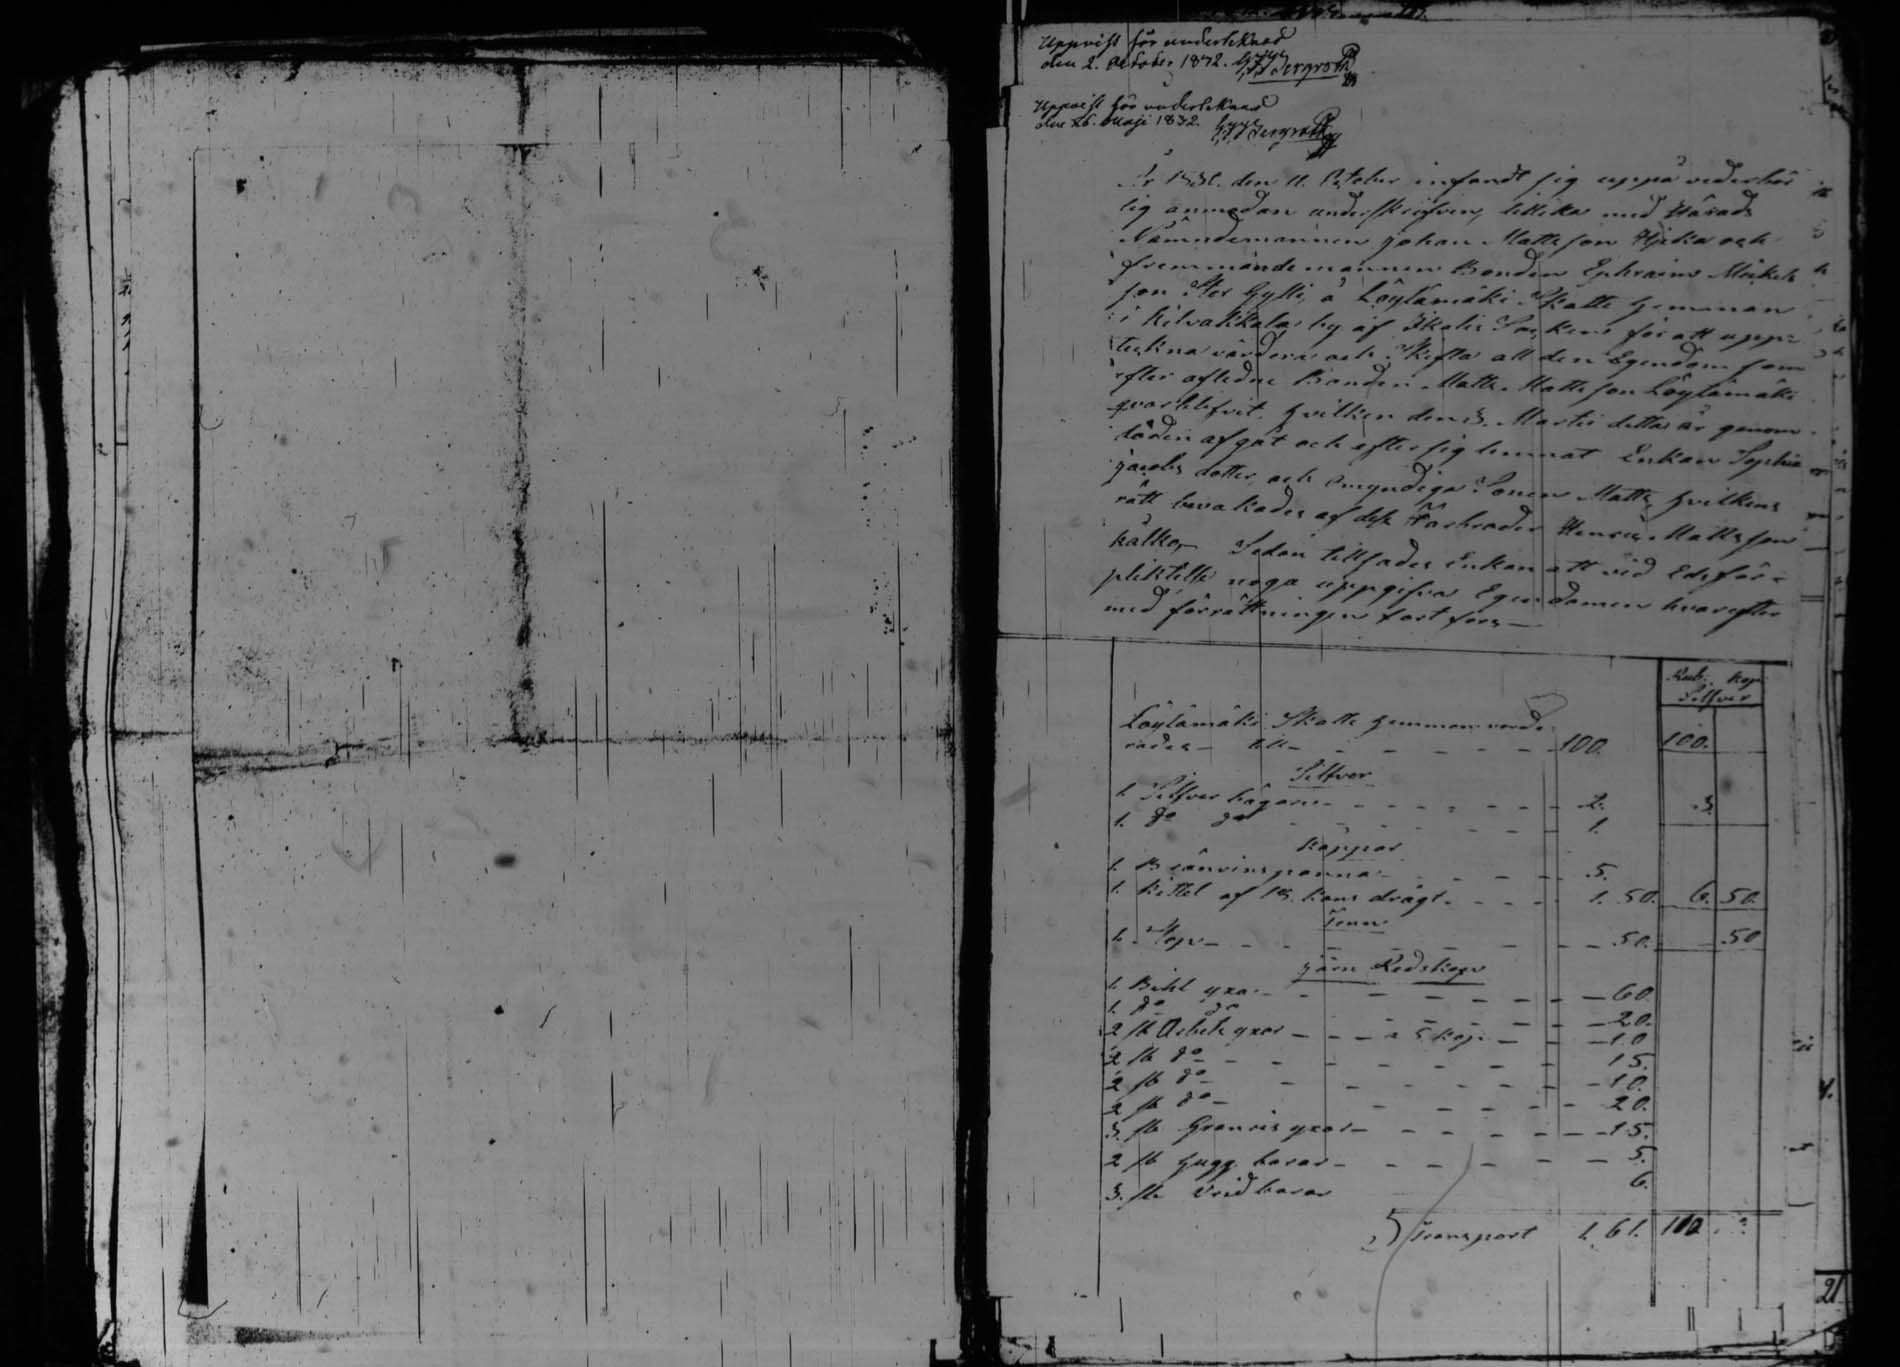 Uppvist för undertecknad
den 2. October 1832.
Uppvist för undertecknad
den 26. Maji 1832.
År 1831. den 11. October infandt sig uppå vederbör
lig anmodan underskrifven, tillika med Härads
Nämndemannen Johan Mattsson Hjska och
fremmande mannen Bonden Ephraim Mickels
son Stor Gylli, å Löytämäki Skatte Hemman
i Kilvakkala by af Ikalis Socken för att upp-
teckna värdera och skifta all den Egendom som
efter aflidne Bonden Matts Mattsson Löytämäki
qvarblifvit, hvilken den 3. Martii detta år genom
döden afgåt och efter sig lemnat Enkan Sophia
Jacobs dotter, och omyndiga Sonen Matts, hvilkens
rätt bevakades af dess Farbroder Henric Mattsson
Kälko, Sedan tillsades Enkan att vid Edsför-
pliktelse noga uppgifva Egendomen hvarefter
med förrättningen fortfors —
Rub. Kop.
Silfver
Löytämäki Skatte Hemman värde
rades till 100. 100.
Silfver
1. Silfver bägare 2. 3.
1. do do 1.
Koppar
1. Bränvins panna 5.
1. Kittel af 18. kans drägt 1. 50. 6. 50.
Tenn
1. Stop 50. 50
Järn Redskap
1. Bihl yxa 60.
1. do do 20.
2 st Arbets yxor a 5 kop. 10
2 st do 15.
2 st do 10.
2 st do 20.
3. st Granris yxor 15.
2 st Hugg borar 5.
3. st Vrid borar 6.
Transport 1. 61. 110
21